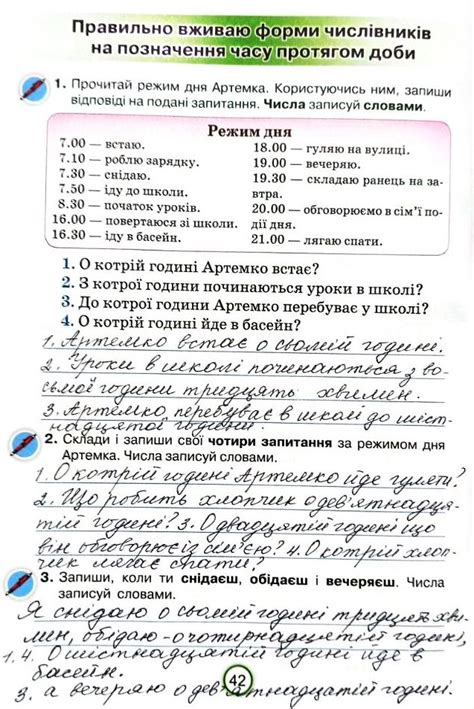 Правильно вживаю форми числівників
на позначення часу протягом доби
1. Прочитай режим дня Артемка. Користуючись ним, запиши
відповіді на подані запитання. Числа записуй словами.
Режим дня
7.00 — встаю.
7.10 — роблю зарядку.
7.30 — снідаю.
7.50 — іду до школи.
8.30 — початок уроків.
16.00 — повертаюся зі школи.
16.30 — іду в басейн.
18.00 — гуляю на вулиці.
19.00 — вечеряю.
19.30 — складаю ранець на за-
втра.
20.00 — обговорюємо в сім'ї по-
дії дня.
21.00 — лягаю спати.
1. О котрій годині Артемко встає?
2. З котрої години починаються уроки в школі?
3. До котрої години Артемко перебуває у школі?
4. О котрій годині йде в басейн?
1. Артемко встає о сьомій годині.
2. Уроки в школі починаються з во-
сьмої години тридцять хвилин.
3. Артемко перебуває в школі до шіст-
надцятої години.
2. Склади і запиши свої чотири запитання за режимом дня
Артемка. Числа записуй словами.
1. О котрій годині Артемко йде гуляти?
2. Що робить хлопчик о дев'ятнадця-
тій годині? 3. О двадцятій годині що
він обговорює із сім'єю? 4. О котрій хлоп-
чик лягає спати?
3. Запиши, коли ти снідаєш, обідаєш і вечеряєш. Числа
записуй словами.
Я снідаю о сьомій годині тридцять хви-
лин, обідаю - о чотирнадцятій годині,
1. 4. О шістнадцятій годині йде в
басейн.
3. а вечеряю о дев'ятнадцятій годині.
42